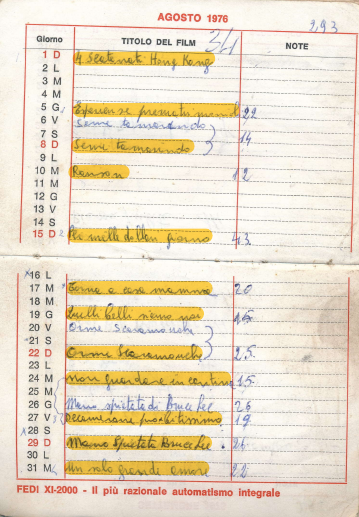 AGOSTO 1976
293
34
Giorno TITOLO DEL FILM NOTE
1 D 4 Scatenati Hong Kong
2 L
3 M
4 M
5 G Esperienze prematrimoniali 22
6 V Seme tamarindo
7 S 14
8 D Seme tamarindo
9 L
10 M Ransom 12
11 M
12 G
13 V
14 S
15 D Per mille dollari giorno 43
16 L
17 M Torna a casa mamma 20
18 M
19 G Brutti Belli siamo noi
20 V Orme Scaramouche
21 S
22 D Orme Scaramouche 25
23 L
24 M non guardare in cantina 15
25 M
26 G Mano spietata di Bruce Lee 26
27 V Decamerone proibitissimo 19
28 S
29 D Mano Spietata Bruce Lee
30 L
31 M Un solo grande amore 22
FEDI XI-2000 - Il più razionale automatismo integrale